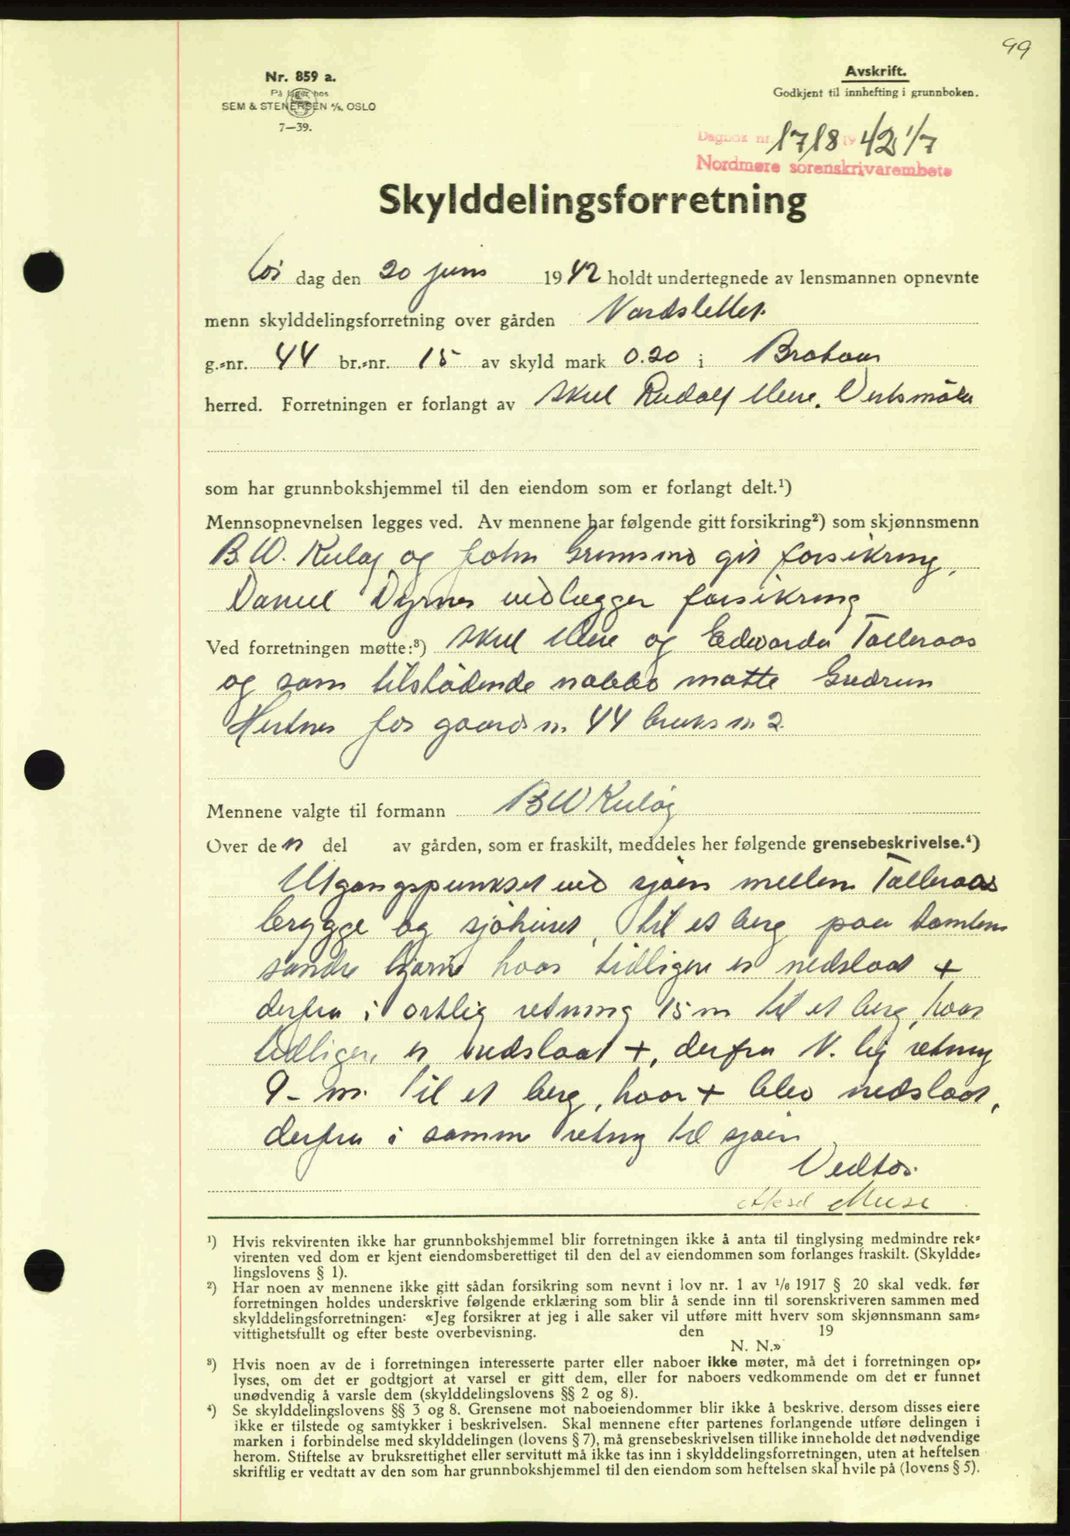 99
Nr. 859 a.
På lager hos
SEM & STENERSEN A/S, OSLO
7—39.
Avskrift.
Godkjent til innhefting i grunnboken.
Dagbok nr. 1718 1942 1/7
Nordmøre sorenskrivarembete
Skylddelingsforretning
Lør dag den 20 juni 1942 holdt undertegnede av lensmannen opnevnte
menn skylddelingsforretning over gården Nordslettet
g.-nr. 44 br.-nr. 15 av skyld mark 0.20 i Brataas
herred. Forretningen er forlangt av Rudolf
som har grunnbokshjemmel til den eiendom som er forlangt delt.¹)
Mennsopnevnelsen legges ved. Av mennene har følgende gitt forsikring²) som skjønnsmenn
B.W. Kuløy og John Grimsmo git forsikring,
Daniel Dyrnes vedlægger forsikring
Ved forretningen møtte:³) og Edvarda Talleraas
og som tilstødende nabo møtte Gudrun
for gaards n. 44 bruks n. 2
Mennene valgte til formann B W Kuløy
Over den del av gården, som er fraskilt, meddeles her følgende grensebeskrivelse.⁴)
Utgangspunktet ved sjøen mellem Talleraas
brygge og sjøhuset, til et berg paa tomtens
søndre hjørne hvor tidligere er nedslaat +
derfra i østlig retning 15 m til et berg, hvor
tidligere er nedslaat +, derfra N. lig retning
9 - m. til et berg, hvor + blev nedslaat,
derfra i samme retning til sjøen
¹) Hvis rekvirenten ikke har grunnbokshjemmel blir forretningen ikke å anta til tinglysing medmindre rek-
virenten ved dom er kjent eiendomsberettiget til den del av eiendommen som forlanges fraskilt. (Skyldde-
lingslovens § 1).
²) Har noen av mennene ikke gitt sådan forsikring som nevnt i lov nr. 1 av 1/6 1917 § 20 skal vedk. før
forretningen holdes underskrive følgende erklæring som blir å sende inn til sorenskriveren sammen med
skylddelingsforretningen: «Jeg forsikrer at jeg i alle saker vil utføre mitt hverv som skjønnsmann sam-
vittighetsfullt og efter beste overbevisning. den 19
N. N.»
³) Hvis noen av de i forretningen interesserte parter eller naboer ikke møter, må det i forretningen op-
lyses, om det er godtgjort at varsel er gitt dem, eller for naboers vedkommende om det er funnet
unødvendig å varsle dem (skylddelingslovens §§ 2 og 8).
⁴) Se skylddelingslovens §§ 3 og 8. Grensene mot naboeiendommer blir ikke å beskrive, dersom disses eiere
ikke er tilstede og samtykker i beskrivelsen. Skal mennene efter partenes forlangende utføre delingen i
marken i forbindelse med skylddelingen (lovens § 7), må grensebeskrivelsen tillike inneholde det nødvendige
herom. Stiftelse av bruksrettighet eller servitutt må ikke tas inn i skylddelingsforretningen, uten at heftelsen
skriftlig er vedtatt av den som har grunnbokshjemmel til den eiendom som heftelsen skal hvile på (lovens § 5).